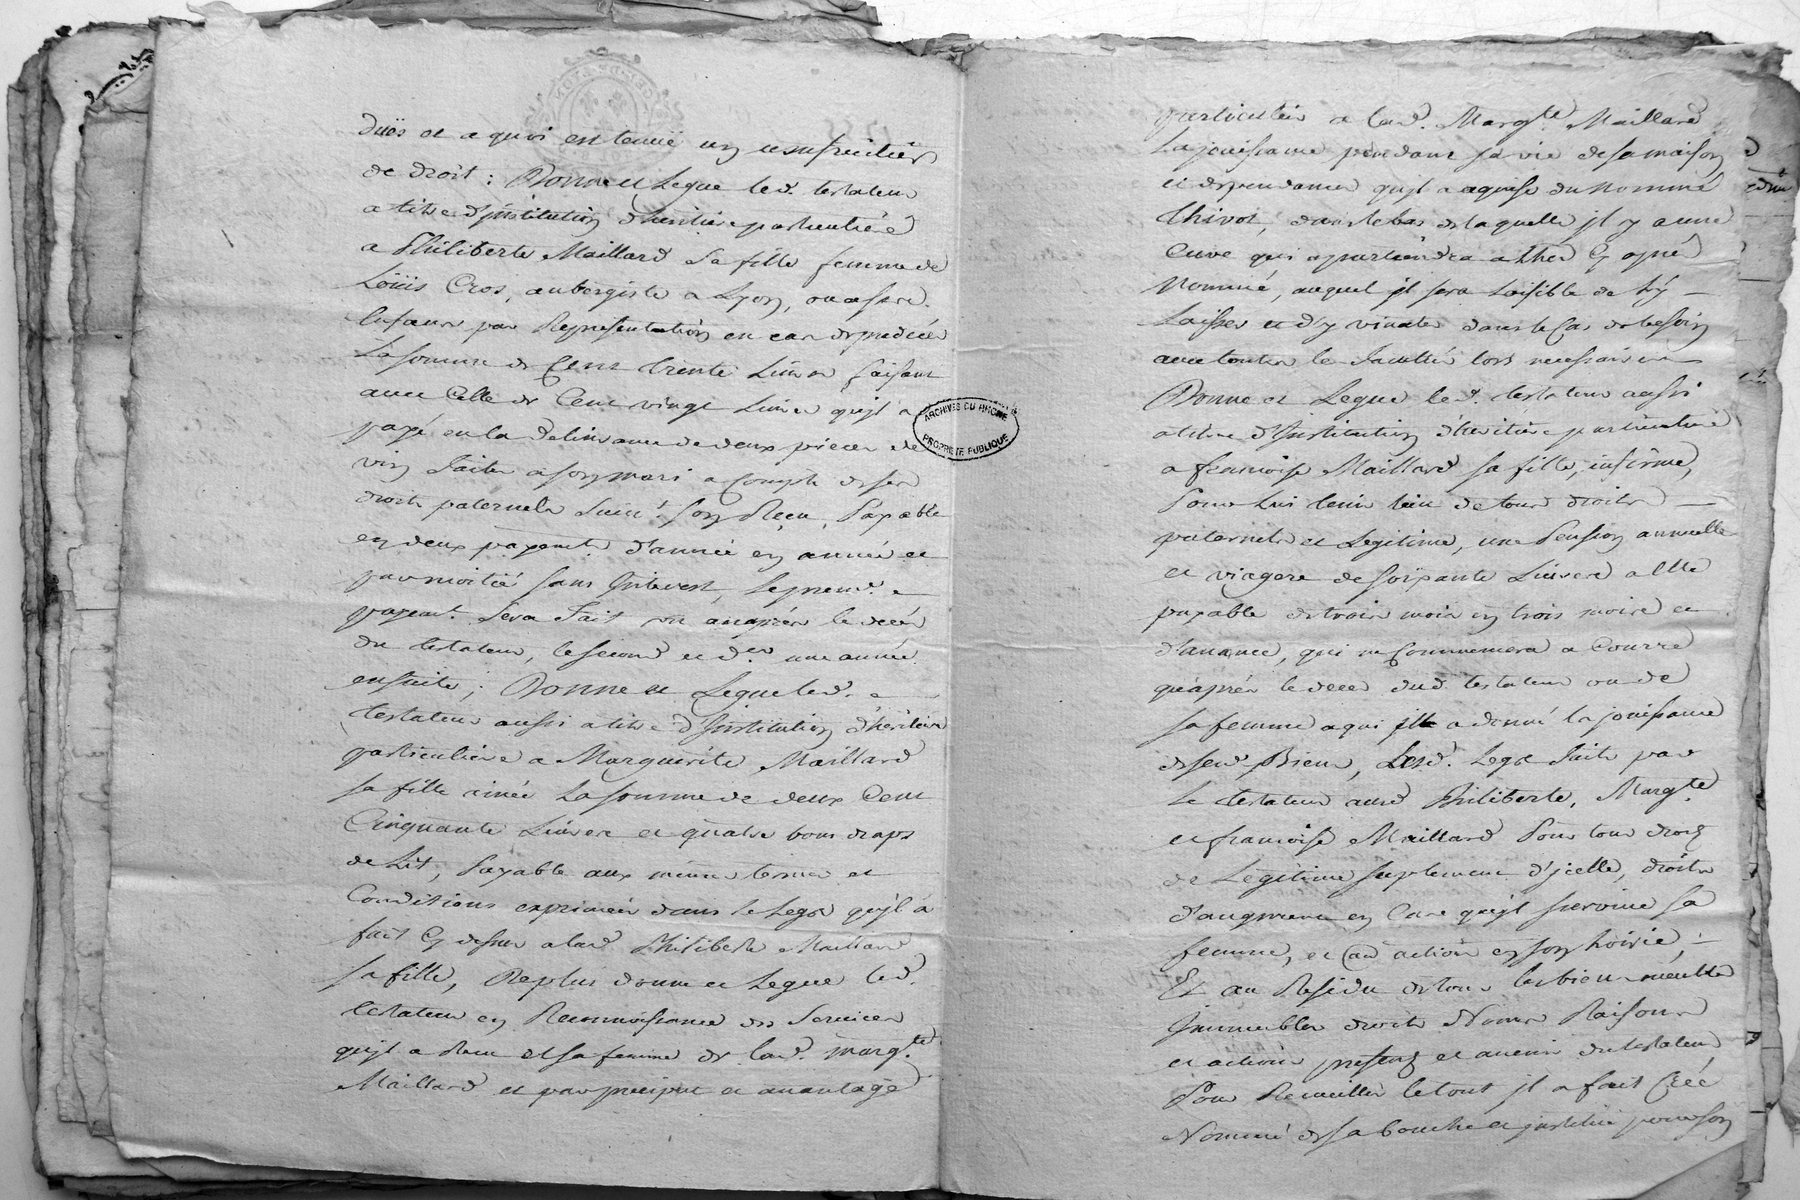 duës et a quoi est tenuë un usufruitier
de droit : Donne et Legue led. testateur
a titre d'jnstitution d'heritiere particulière
a Philiberte Maillard sa fille femme de
Loüis Cros, aubergiste a Lyon, ou a ses
Enfans par Representation en cas de predecés
La somme de Cent trente Livres faisant
avec Celle de Cent vingt Livres qu'jl a
payé en la delivrance de deux pieces de
vin faite a son mari a compte de ses
droits paternels suiv.t son Recu, Payable
en deux payemt. d'année en année et
par moitié sans Interest, le prem.r
payemt. sera fait un an après le decés
du testateur, le second et d.er une année
ensuite ; Donne et Legue led.
testateur aussi a titre d'Jnstitution d'heritiere
particuliere a Marguerite Maillard
sa fille ainée La somme de deux Cent
Cinquante Livres et quatre bons draps
de Lit, Payable aux même termes et
Conditions exprimées dans le Legs qu'jl a
fait Cy dessus a lad. Philiberte Maillard
sa fille, De plus donne et Legue led.
testateur en Reconnoissance des Services
qu'jl a Recu et sa femme de lad. Marg.te
Maillard et par preciput et avantage
particulier a lad. Marg.te Maillard
La jouissance pendant sa vie de sa maison
et dependances qu'jl a aquise du nommé
thivot, dans le bas de laquelle jl y a une
Cuve qui apartiendra a l'her. Cy après
Nommé, auquel jl sera Loisible de l'y
Laisser et d'y vinater dans le Cas de besoin
avec toutes les facultés lors necessaires
Donne et Legue led. testateur aussi
a titre d'Jnstitution d'heritiere particuliere
a francoise Maillard sa fille, infirme,
Pour Lui tenir lieu de tous droits
paternels et Legitime, une Pension annuelle
et viagere de soixante Livres a Elle
payable de trois mois en trois mois et
d'avance, qui ne Commencera a Courre
qu'après le decés dud. testateur ou de
sa femme a qui jl a donné la jouissance
de ses Biens, Lesd. Legs faits par
le testateur auxd. Philiberte, Marg.te
et francoise Maillard Pour tous droits
de Legitime suplement d'jcelle, droits
d'augment en Cas qu'jl survive sa
femme, et autre action en son hoirie,
Et au Residu de tous les biens meubles
Jmmeubles droits Noms Raisons
et actions presents et avenir du testateur,
Pour Recueillir le tout jl a fait Créé
Nommé de sa bouche et jnstitué pour son
ARCHIVES DU RHONE
PROPRIETE PUBLIQUE